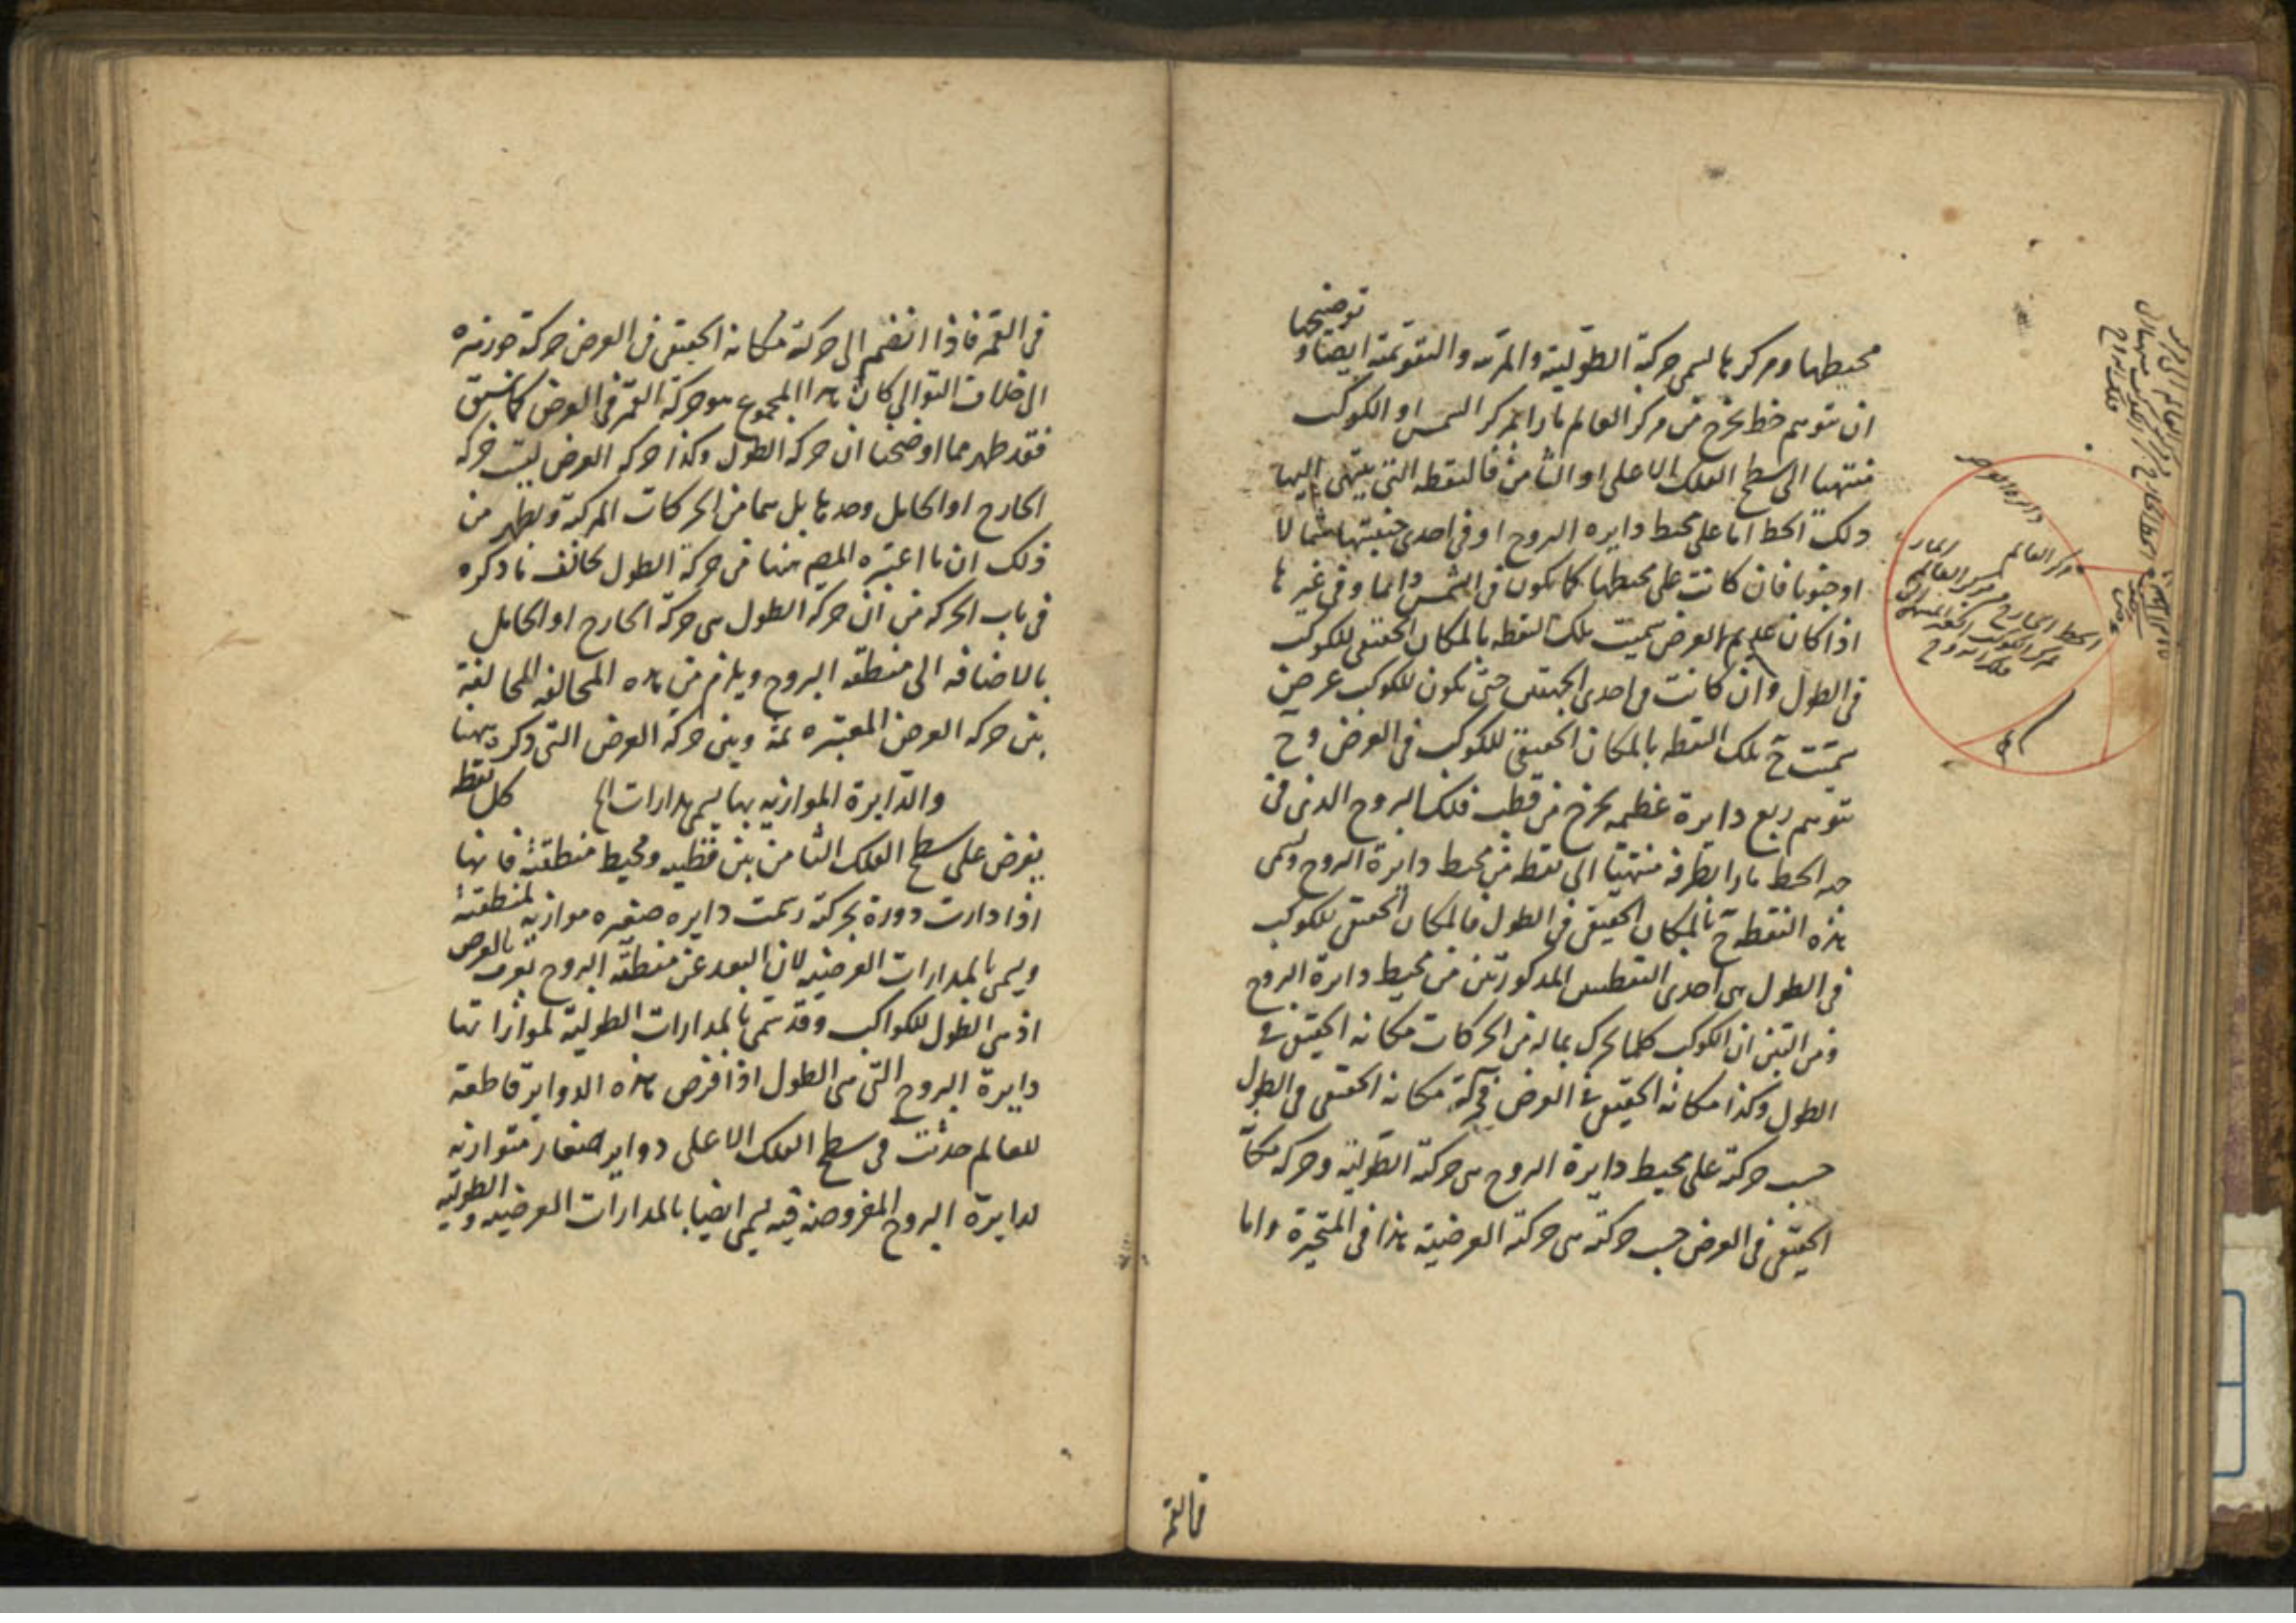 توضيحها
محيطها ومركزها يسمى حركة الطولية والمرئية والتقويمية ايضا و
ان نتوهم خط يخرج من مركز العالم مارا بمركز الشمس او الكوكب
منتهيا الى سطح الفلك الاعلى او الثامن فالنقطه التى ينتهى اليها
ذلك الخط اما على محيط دايره البروج او فى احدى جنبتيها شمالا
او جنوبا فان كانت على محيطها كما يكون فى الشمس دائما وفى غيرها
اذا كان عديم العرض سميت تلك النقطه بالمكان الحقيقى للكوكب
فى الطول وان كانت فى احدى الجنبتين حتى يكون للكوكب عرض
سميت ح تلك النقطه بالمكان الحقيقى للكوكب فى العرض و ح
نتوهم ربع دايرة عظيمه يخرج من قطب فلك البروج الذى فى
جهة الخط مارا بطرفه منتهيا الى نقطه من محيط دايرة البروج وتسمى
هذه النقطه ح بالمكان الحقيقى فى الطول فالمكان الحقيقى للكوكب
فى الطول هى احدى النقطتين المذكورتين من محيط دايرة البروج
ومن البين ان الكوكب كلما تحرك بماله من الحركات مكانه الحقيقى فى
الطول وكذا مكانه الحقيقى فى العرض فحركة مكانه الحقيقى فى الطول
حسب حركته على محيط دايرة البروج هى حركته الطولية وحركه مكانه
الحقيقى فى العرض حسب حركته هى حركته العرضية هذا فى المتحيرة واما
فالقمر
دايرة العرض
مركز العالم
فلك البروج
فى القمر فاذا انضم الى حركة مكانه الحقيقى فى العرض حركة جوزهره
الى خلاف التوالى كان هذا المجموع هو حركة القمر فى العرض كما سبق
فقد ظهر مما اوضحنا ان حركه الطول وكذا حركه العرض ليست حركه
الخارج او الحامل وحدها بل هما من الحركات المركبة ويظهر من
ذلك ان ما اعتبره المص ههنا من حركة الطول يخالف ما ذكره
فى باب الحركه من ان حركه الطول هى حركة الخارج او الحامل
بالاضافه الى منطقه البروج ويلزم من هذه المخالفه المخالفة
بين حركه العرض المعتبره ثمة وبين حركة العرض التى ذكر ههنا
والدايرة الموازيه بها يسمى مدارات الخ كل نقطه
يفرض على سطح الفلك الثامن بين قطبيه ومحيط منطقته فانها
اذا دارت دورة بحركته رسمت دايره صغيره موازيه لمنطقته
ويسمى بالمدارات العرضيه لان البعد عن منطقة البروج يعرف بالعرض
اذ هى الطول للكواكب وقد تسمى بالمدارات الطولية لموازاتها
دايرة البروج التى هى الطول اذا فرض هذه الدواير قاطعة
للعالم حدثت فى سطح الفلك الاعلى دواير صغار متوازيه
لدايرة البروج المفروضه فيه يسمى ايضا بالمدارات العرضيه والطولية